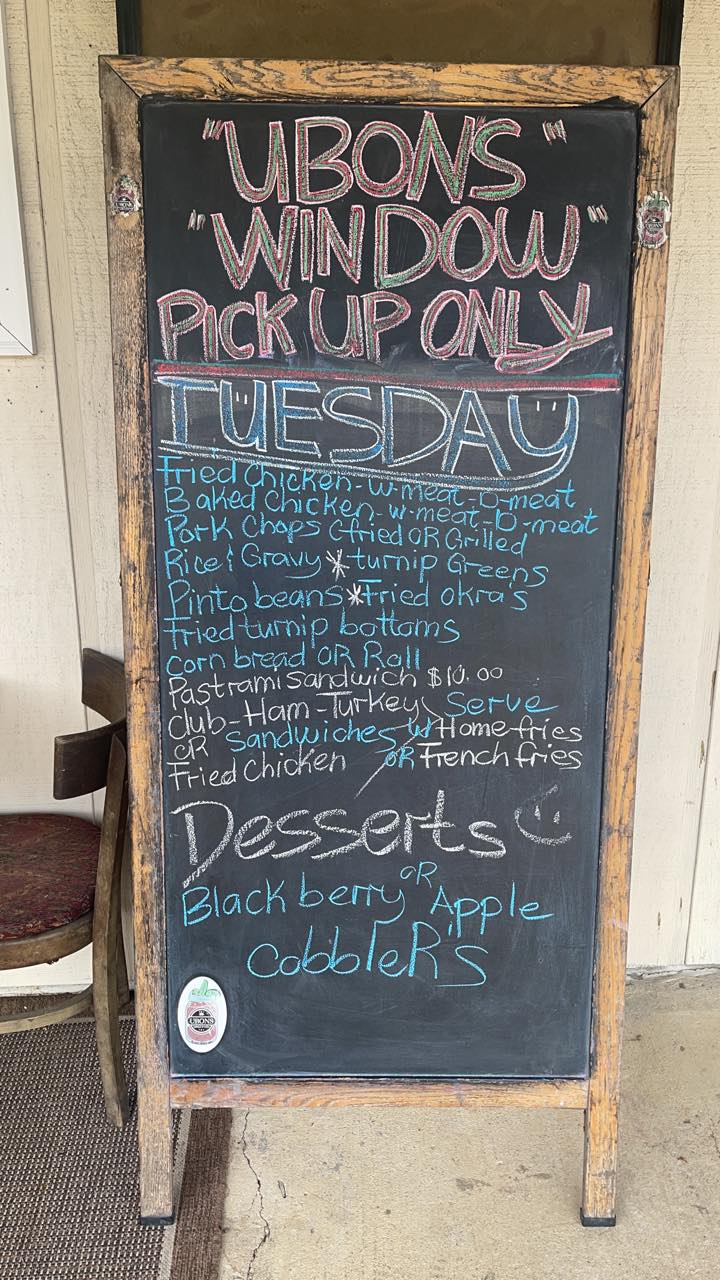 "UBON'S"
"WINDOW"
PICK UP ONLY
TUESDAY
Fried Chicken-w-meat-D-meat
Baked Chicken-w-meat-D-meat
Pork Chops Cfried OR Grilled
Rice & Gravy * turnip Greens
Pinto beans * Fried okra's
Fried turnip bottoms
corn bread OR Roll
Pastrami sandwich $10.00
Club-Ham-Turkey Serve
OR Sandwiches W/ Home fries
Fried Chicken OR French fries
Desserts
Black berry OR Apple
cobbleRs
UBONS